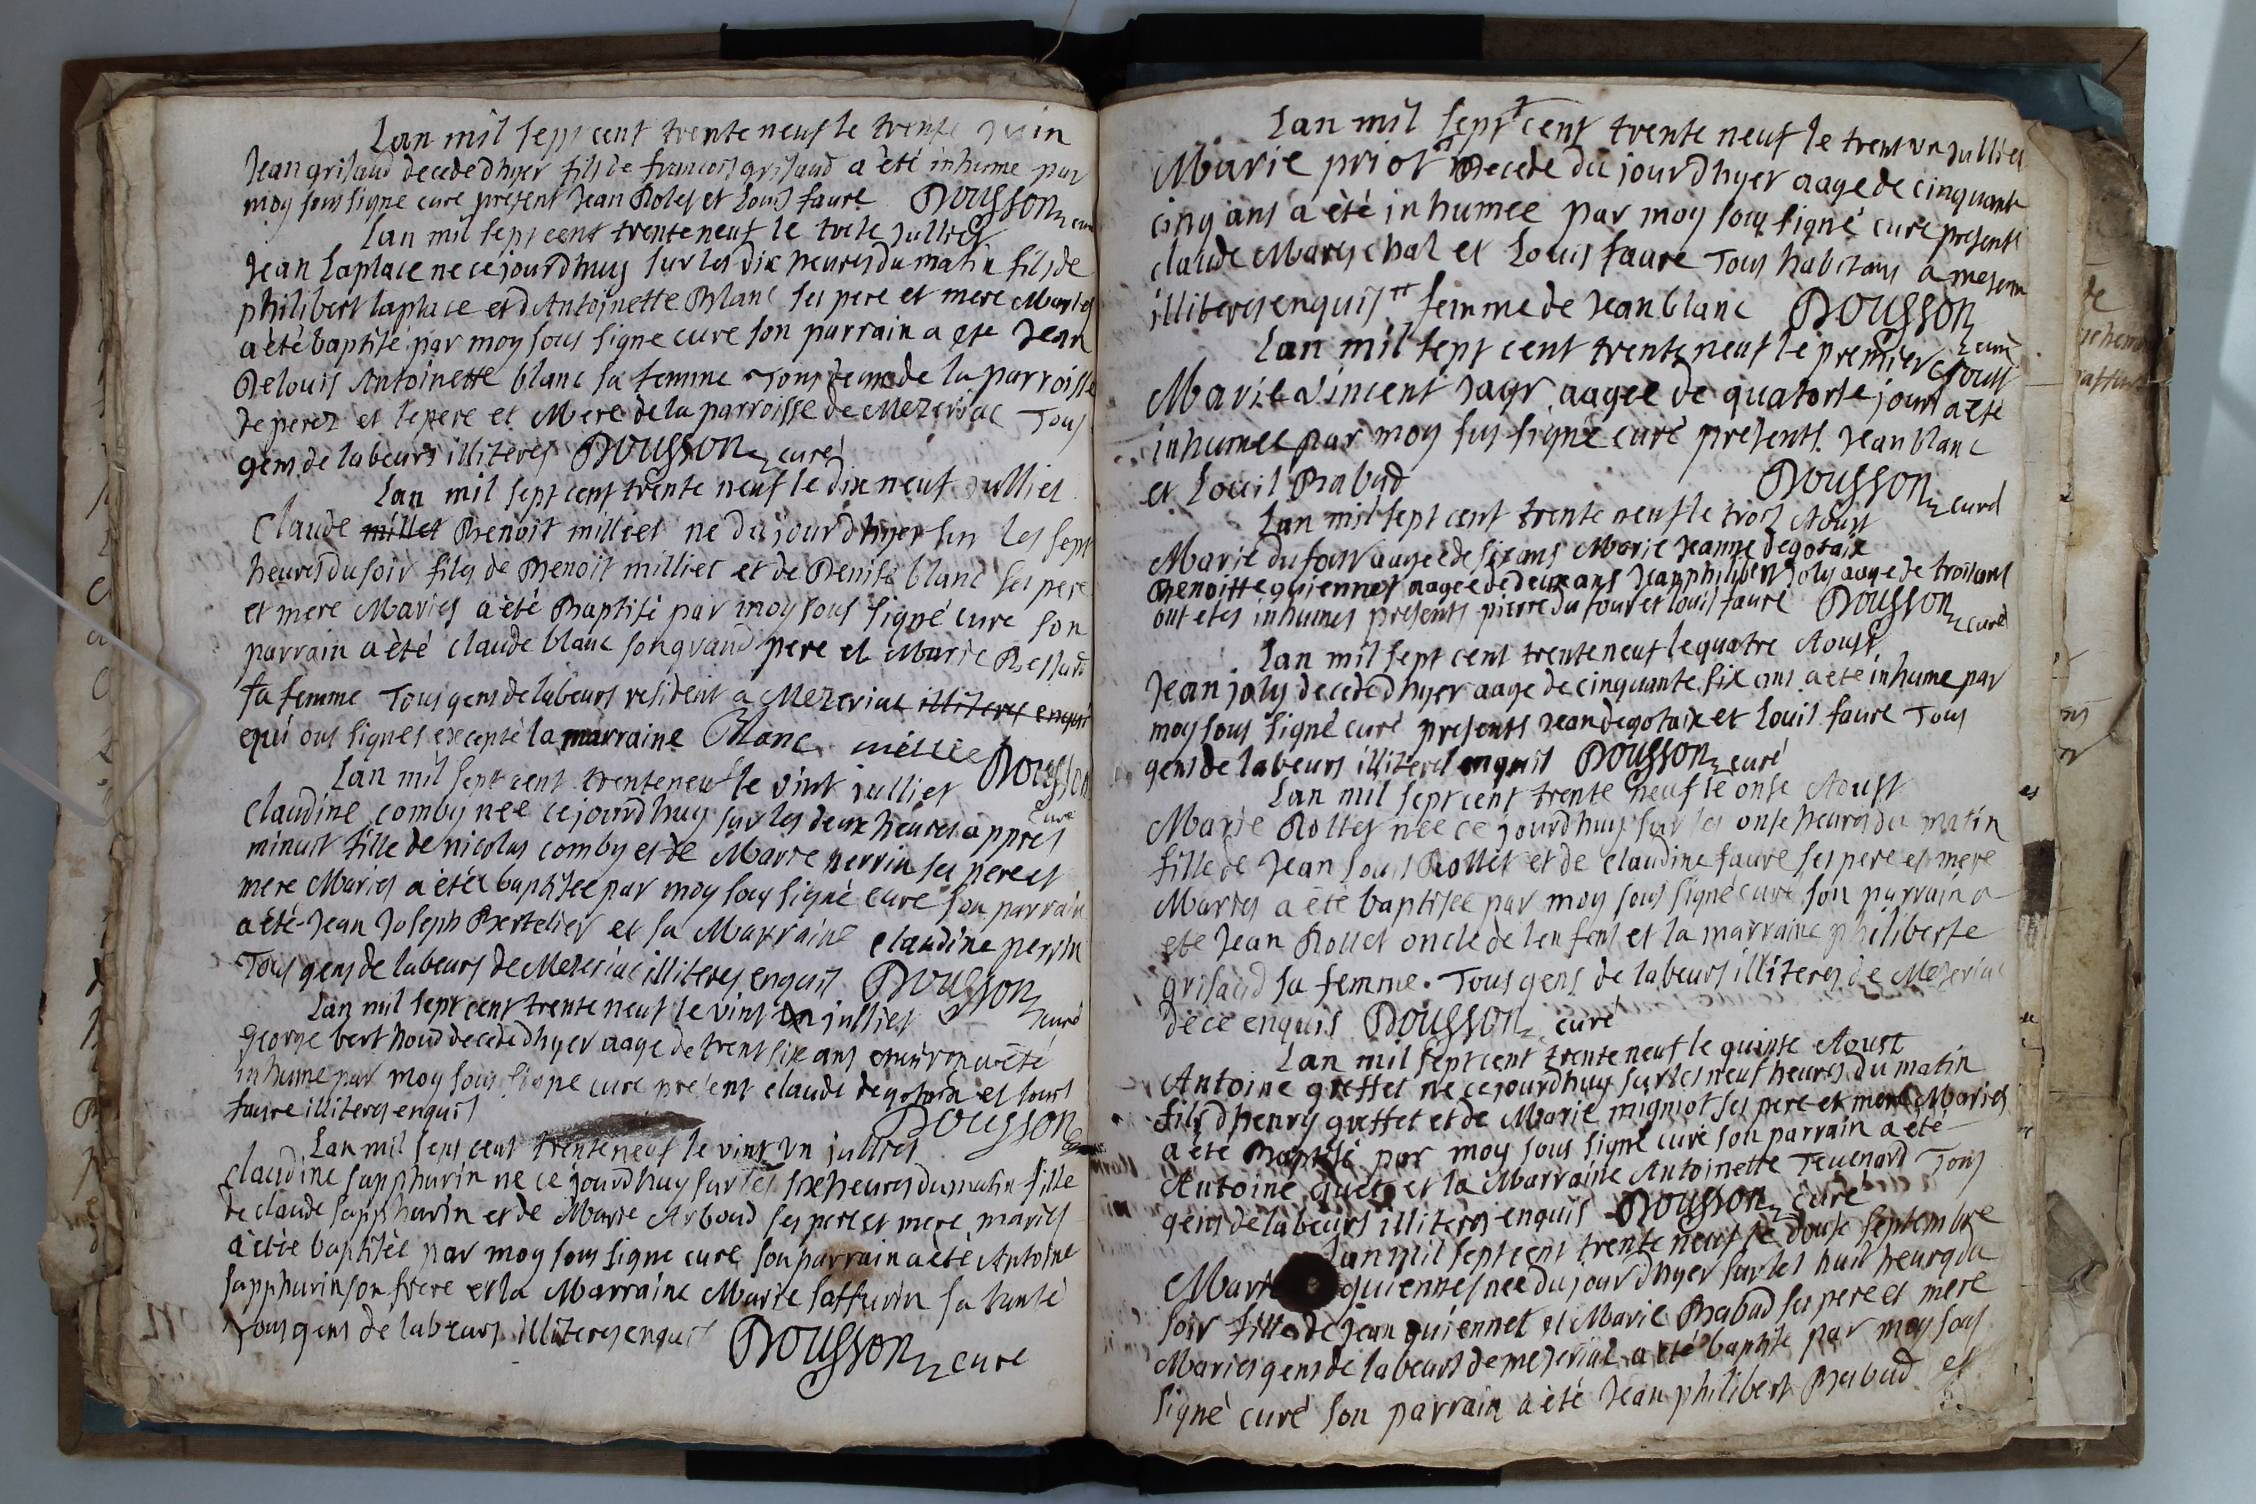 Lan mil sept cent trente neuf le trente juin
Jean grisaud decede dhyer fils de francois grisaud a èté inhume par
moy sous signe curé present Jean Rolet et Louis faure Dousson curé
Lan mil sept cent trente neuf le treise julliet
Jean Laplace ne ce jourdhuy sur les dix heures du matin fils de
philibert laplace et dAntoinette Blanc ses pere et mere Maries
a été baptisé par moy sous signe cure son parrain a ete Jean
Delouis Antoinette blanc sa femme Tous de la parroisse
de perez et le pere et Mere de la parroisse de Mezeriac Tous
gens de labeurs illiteres Dousson curé
Lan mil sept cent trente neuf le Dix neuf julliet
Claude millet Benoit milliet ne du jour dhyer sur les sept
heures du soir fils de Benoit milliet et de Denise blanc ses pere
et mere Maries a èté Baptisé par moy sous signé cure son
parrain a èté claude blanc son grand pere et Marie
sa femme Tous gens de labeurs resident a Mezeriac illiteres enquis
qui ont signes excepté la marraine Blanc Dousson
curé
Lan mil sept cent trente neuf le vint julliet
Claudine comby neé ce jourdhuy sur les deux heures appres
minuit fille de nicolas comby et de Marie perrin ses pere et
mere Maries a étée baptisee par moy sous signé curé son parrain
a été Jean Joseph Bertelier et sa Marraine claudine perrin
Tous gens de labeurs de Mezeriac illiteres enquis Dousson
curé
Lan mil sept cent trente neuf le vint un julliet
george berthoud decede dhyer aage de trent six ans environ a èté
inhume par moy sous signe cure present claude degotaix et Louis
faure illiteres enquis Dousson
Lan mil sept cent trente neuf le vint vn julliet
claudine sapphurin ne ce jourdhuy sur les six heures du matin fille
de claude sapphurin et de Marie Arboud ses pere et mere maries
a étée baptisée par moy sous signe cure son parrain a èté Antoine
sapphurin son frere et la Marraine Marie saffurin sa tante
Tous gens de labeurs illiteres enquis Dousson curé
Lan mil sept cent trente neuf le trent vn julliet
Marie priot Decede du jourdhyer aage de cinquante
cinq ans a èté inhumee par moy sous signé curé presents
claude Mareschal et Louis faure Tous habitans a
illiteres enquis femme de Jean blanc Dousson
curé
Lan mil sept cent trente neuf le premier Aoust
Marie Vincent Jayr aagee de quatorse jours a été
inhumee par moy sus signé curé presents Jean blanc
et Louis Rabud Dousson curé
Lan mil sept cent trente neuf le trois Aoust
Marie du four aagee de six ans Marie Jeanne degotaix
Benoitte quiennet aagee de deux ans Jean philibert joly aage de trois ans
ont etes inhumes presents pierre du four et Louis faure Dousson curé
Lan mil sept cent trente neuf le quatre Aoust
Jean joly decede dhyer aage de cinquante six ans a eté inhume par
moy sous signé curé presents Jean degotaix et Louis faure Tous
gens de labeurs illiteres enquis Dousson curé
Lan mil sept cent trente neuf le onse Aoust
Marie Rollet neé ce jourdhuy sur les onse heures du matin
fille de Jean Louis Rollet et de claudine faure ses pere et mere
Maries a été baptisee par moy sous signé curé son parrain a
ete Jean Rollet oncle de lenfent et la marraine philiberte
grisaud sa femme. Tous gens de labeurs illiteres de Mezeriac
de ce enquis Dousson curé
Lan mil sept cent trente neuf le quinse Aoust
Antoine greffet ne ce jourdhuy sur les neuf heures du matin
fils dhenry greffet et de Marie migniot ses pere et mere Maries
a èté Baptisé par moy sous signé curé son parrain a èté
Antoine et la Marraine Antoinette Tevenard Tous
gens de labeurs illiteres enquis Dousson curé
Lan mil sept cent trente neuf le douse septembre
quiennet neé du jour dhyer sur les huit heures du
soir fille de Jean quiennet et Marie Rabud ses pere et mere
Maries gens de labeurs de mezeriac a eté baptisé par moy sous
signé curé son parrain a èté Jean philibert Rabud et